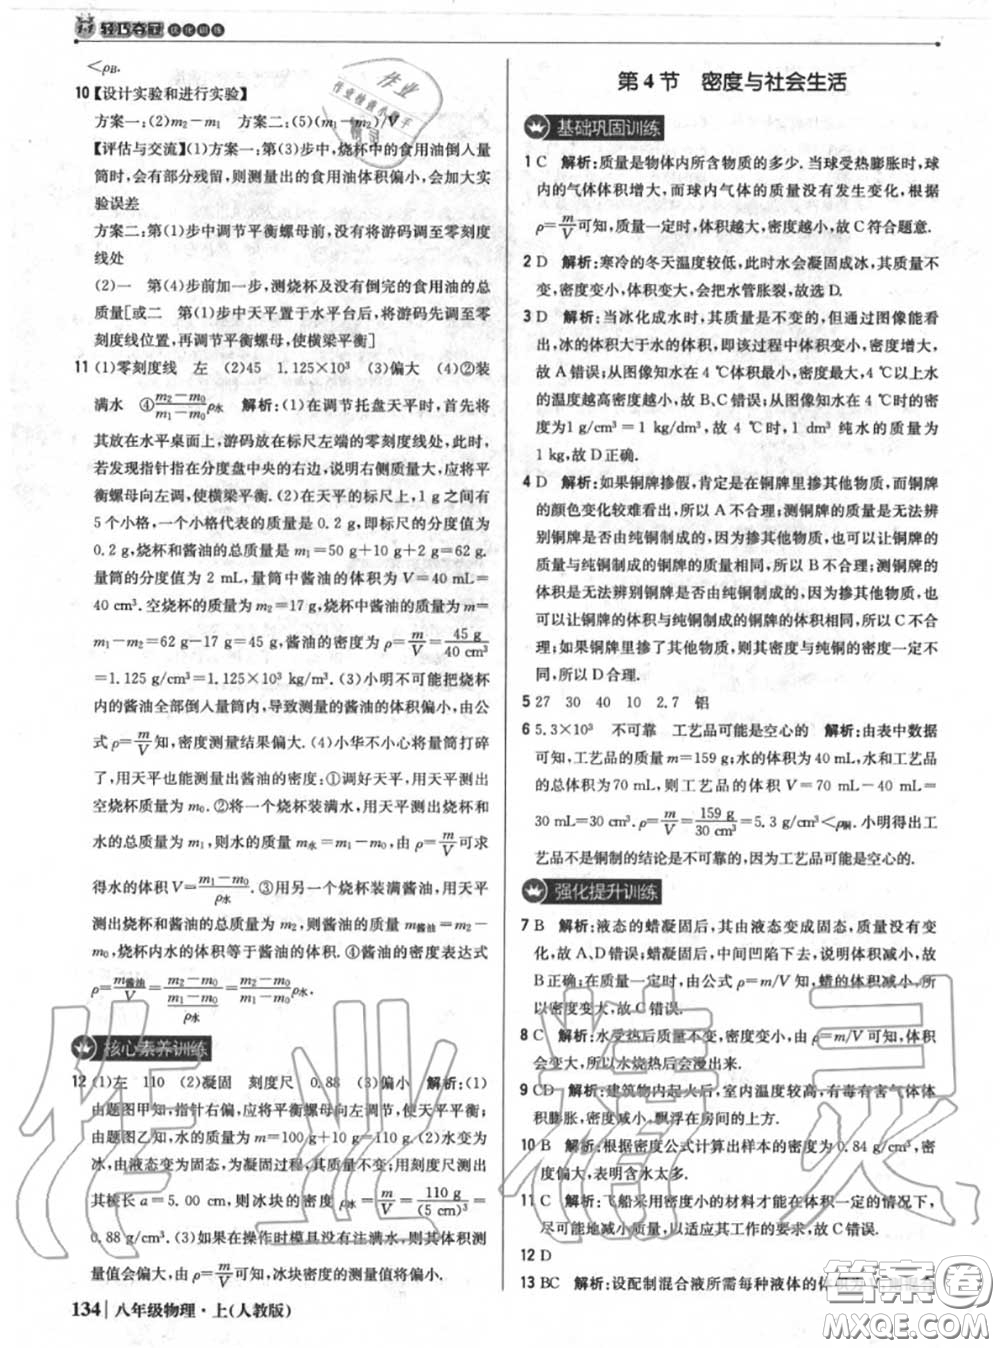 轻巧夺冠 优化训练
<ρB.
10【设计实验和进行实验】
方案一:(2)m2-m1 方案二:(5)(m1-m2)/V
【评估与交流】(1)方案一:第(3)步中,烧杯中的食用油倒入量
筒时,会有部分残留,则测量出的食用油体积偏小,会加大实
验误差
方案二:第(1)步中调节平衡螺母前,没有将游码调至零刻度
线处
(2)一 第(4)步前加一步,测烧杯及没有倒完的食用油的总
质量[或二 第(1)步中天平置于水平台后,将游码先调至零
刻度线位置,再调节平衡螺母,使横梁平衡]
11 (1)零刻度线 左 (2)45 1.125×10³ (3)偏大 (4)②装
满水 ④(m2-m0)/(m1-m0)ρ水 解析:(1)在调节托盘天平时,首先将
其放在水平桌面上,游码放在标尺左端的零刻度线处,此时,
若发现指针指在分度盘中央的右边,说明右侧质量大,应将平
衡螺母向左调,使横梁平衡.(2)天平的标尺上,1 g之间有
5个小格,一个小格代表的质量是0.2 g,即标尺的分度值为
0.2 g,烧杯和酱油的总质量是m1=50 g+10 g+2 g=62 g.
量筒的分度值为2 mL,量筒中酱油的体积为V=40 mL=
40 cm³.空烧杯的质量为m2=17 g,烧杯中酱油的质量m=
m1-m2=62 g-17 g=45 g,酱油的密度为ρ=m/V=45 g/40 cm³
=1.125 g/cm³=1.125×10³ kg/m³.(3)小明不可能把烧杯内
的酱油全部倒入量筒内,导致测量的酱油体积偏小,由公
式ρ=m/V知,密度测量结果偏大.(4)小华不小心将量筒打碎
了,用天平也能测量出酱油的密度:①调好天平,用天平测出
空烧杯质量为m0.②将一个烧杯装满水,用天平测出烧杯和
水的总质量为m1,则水的质量m水=m1-m0,由ρ=m/V可求
得水的体积V=(m1-m0)/ρ水.③把烧杯中的水倒尽,再装满酱油,用天平
测出烧杯和酱油的总质量为m2,则酱油的质量m酱油=m2-
m0,烧杯内水的体积等于酱油的体积.④酱油的密度表达式
ρ=m酱油/V=(m2-m0)/((m1-m0)/ρ水)=(m2-m0)/(m1-m0)ρ水.
核心素养训练
12 (1)左 110 (2)凝固 刻度尺 0.88 (3)偏小 解析:(1)
由题图甲知,指针右偏,应将平衡螺母向左调,使天平平衡;
由题图乙知,水的质量m=100 g+10 g=110 g.(2)水结成
冰,由液态变为固态,发生了凝固.用刻度尺测出
其棱长a=5.00 cm,则冰块的密度ρ=m/V=110 g/(5 cm)³=
0.88 g/cm³.(3)如果在操作时模具没有注满水,则其质量测
量值会偏大,由ρ=m/V知,冰块密度的测量值会偏大.
134 八年级物理·上(人教版)
第4节 密度与社会生活
基础巩固训练
1 C 解析:质量是物体内所含物质的多少.当球受热膨胀时,球
内的气体体积增大,而球内气体的质量没有发生变化,根据
ρ=m/V可知,质量一定时,体积越大,密度越小,故C符合题意.
2 D 解析:寒冷的冬天温度较低,此时水会凝固成冰,其质量不
变,密度变小,体积变大,会把水管胀裂,故选D.
3 D 解析:当冰化成水时,其质量是不变的,但通过图像能看
出,冰的体积大于水的体积,即该过程中体积变小,密度增大,
故A错误;从图像知水在4 ℃时体积最小,密度最大,4 ℃以上水
的温度越高密度越小,故B、C错误;从图像知水在4 ℃时的密
度为1 g/cm³=1 kg/dm³,故4 ℃时,1 dm³ 纯水的质量为
1 kg,故D正确.
4 D 解析:如果铜牌掺假,肯定是在铜牌里掺其他物质,而铜牌
的颜色变化较难看出,所以A不合理;测铜牌的质量是无法辨
别铜牌是否由纯铜制成的,因为掺其他物质,也可以让铜牌的
质量与纯铜制成的铜牌的质量相同,所以B不合理;测铜牌的
体积是无法辨别铜牌是否由纯铜制成的,因为掺其他物质,也
可以让铜牌的体积与纯铜制成的铜牌的体积相同,所以C不合
理;如果铜牌里掺了其他物质,则铜牌的密度与纯铜的密度不
同,所以D合理.
5 27 30 40 10 2.7 铝
6 5.3×10³ 不可靠 工艺品可能是空心的 解析:由表中数据
可知,工艺品的质量m=159 g;水的体积为40 mL,水和工艺品
的总体积为70 mL,则工艺品的体积V=70 mL-40 mL=
30 mL=30 cm³.ρ=m/V=159 g/30 cm³=5.3 g/cm³<ρ铜.小明得出工
艺品不是铜制的结论是不可靠的,因为工艺品可能是空心的.
强化提升训练
7 B 解析:液态的蜡凝固后,其由液态变成固态,质量没有变
化,故A、D错误;蜡凝固后,中间凹陷下去,说明体积减小,故
B正确;在质量一定时,由公式ρ=m/V可知,蜡的体积变小,所
以密度变大,故C错误.
8 C 解析:水受热后质量不变,密度变小,由ρ=m/V可知,体积
会变大,所以水烧热后会漫出来.
9 CD 解析:建筑物内起火后,室内温度较高,有毒有害气体体
积膨胀,密度减小,飘浮在房间的上方.
10 B 解析:根据密度公式计算出样本的密度为0.84 g/cm³,密
度偏大,表明含水太多.
11 C 解析:飞船采用密度小的材料才能在体积一定的情况下,
尽可能地减小质量,以适应其工作的要求,故C错误.
12 D
13 BC 解析:设配制混合液所需每种液体的体积
作业精灵
答案圈